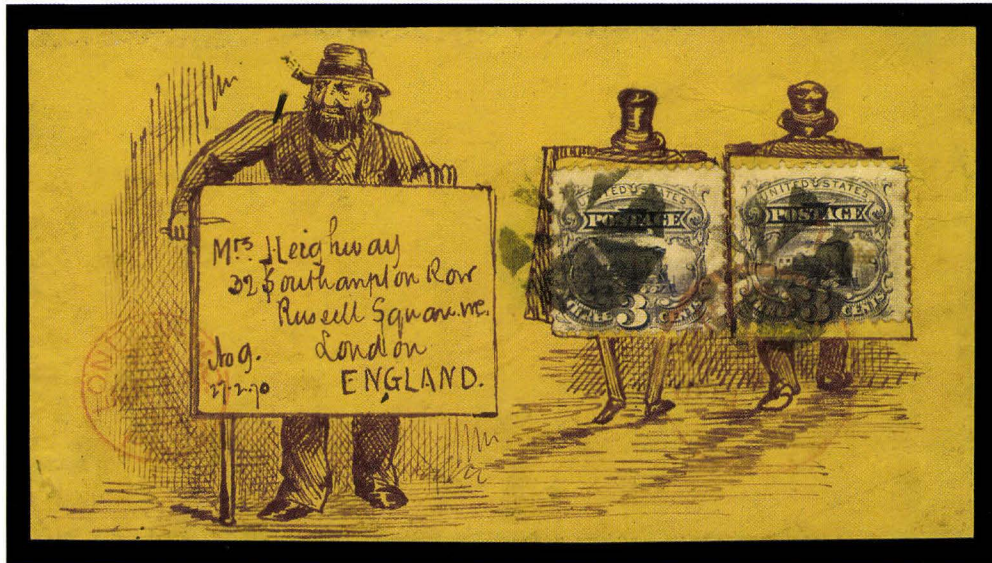 Mrs Heighway
32 Southampton Row
Russell Square. WC.
London
ENGLAND.
No 9.
27.2.70
UNITED STATES
POSTAGE
THREE 3 CENTS
UNITED STATES
POSTAGE
3 CENTS
LON